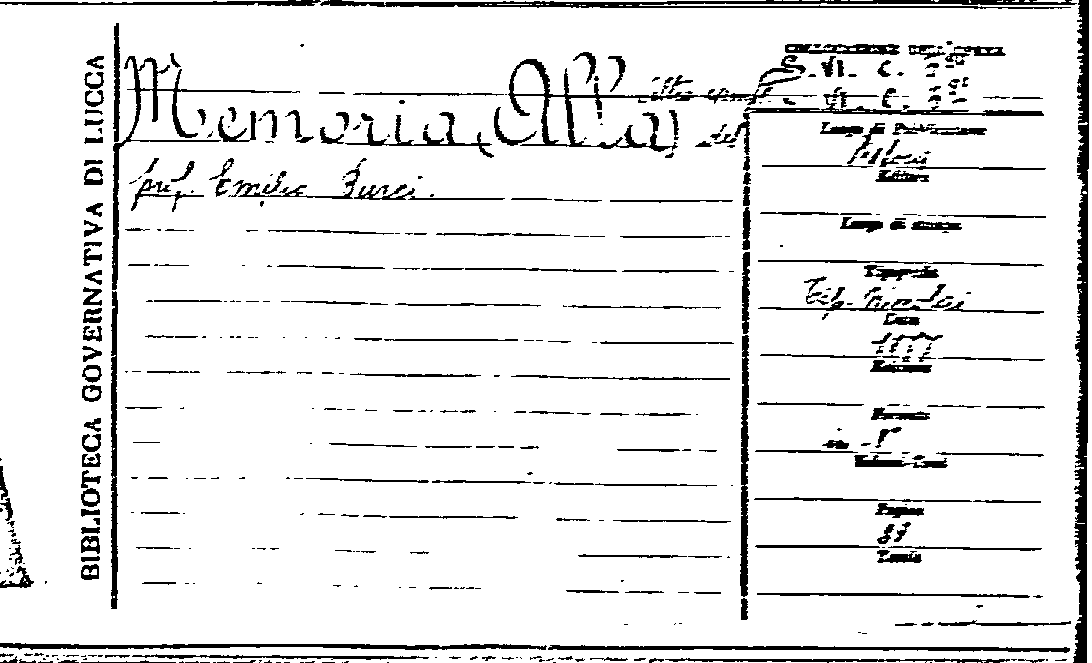 BIBLIOTECA GOVERNATIVA DI LUCCA
Memoria (Alla) del
prof. Emilio Burci.
COLLOCAZIONE DELL'OPERA
S. VI. C.
VI. C.
Luogo di Pubblicazione
Editore
Luogo di stampa
Tipografia
Tip. Niccolai
Data
Edizione
Formato
in
Volumi-Tomi
Pagine
Tavole